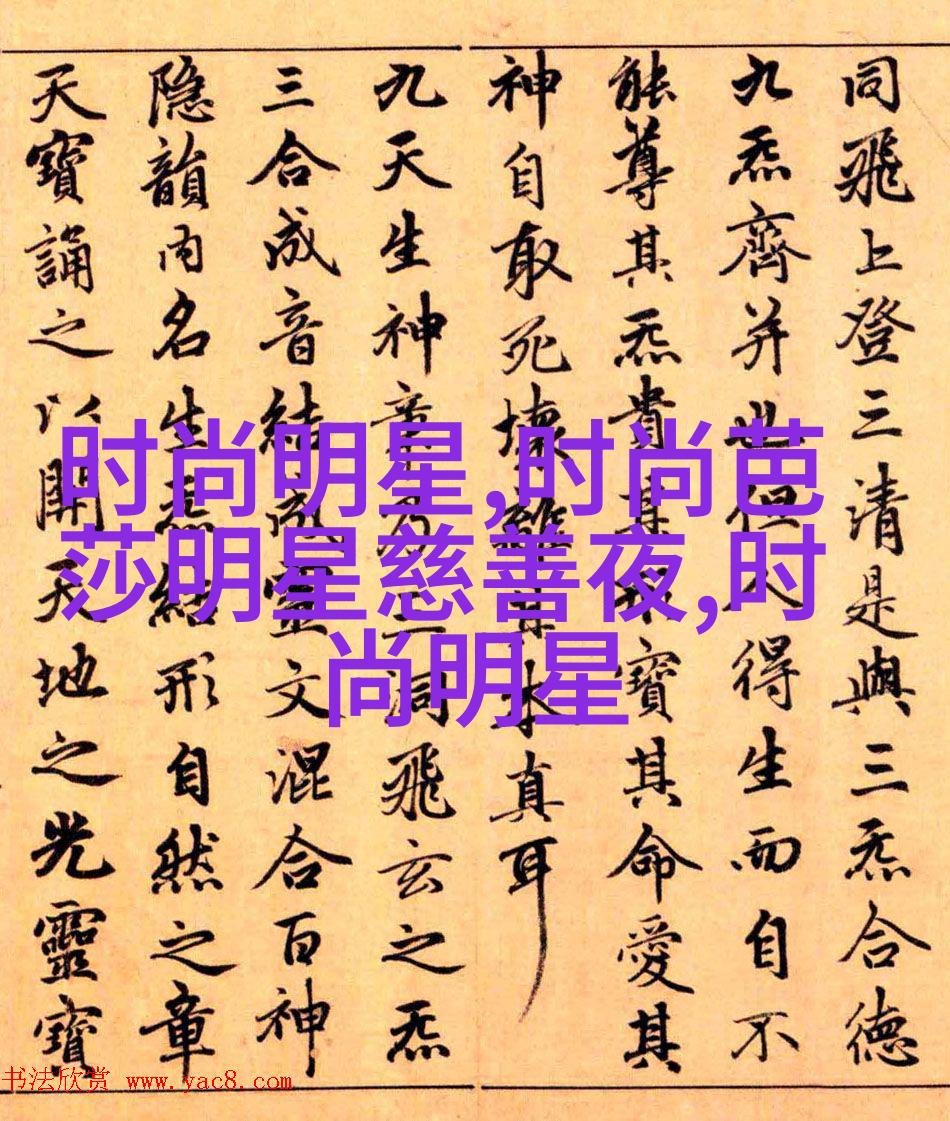 同飛上登三清是與三炁合德
九炁齊并也但人得生而自不
能尊其炁貴其形寶其命愛其
神自取死壞離其本真耳
九天生神章乃三洞飛玄之炁
三合成音結成靈文混合百神
隐韻内名生炁結形自然之章
天寶誦之以開天地之光靈寶
时尚明星,时尚芭
莎明星慈善夜,时
尚明星
书法欣赏 www.yac8.com